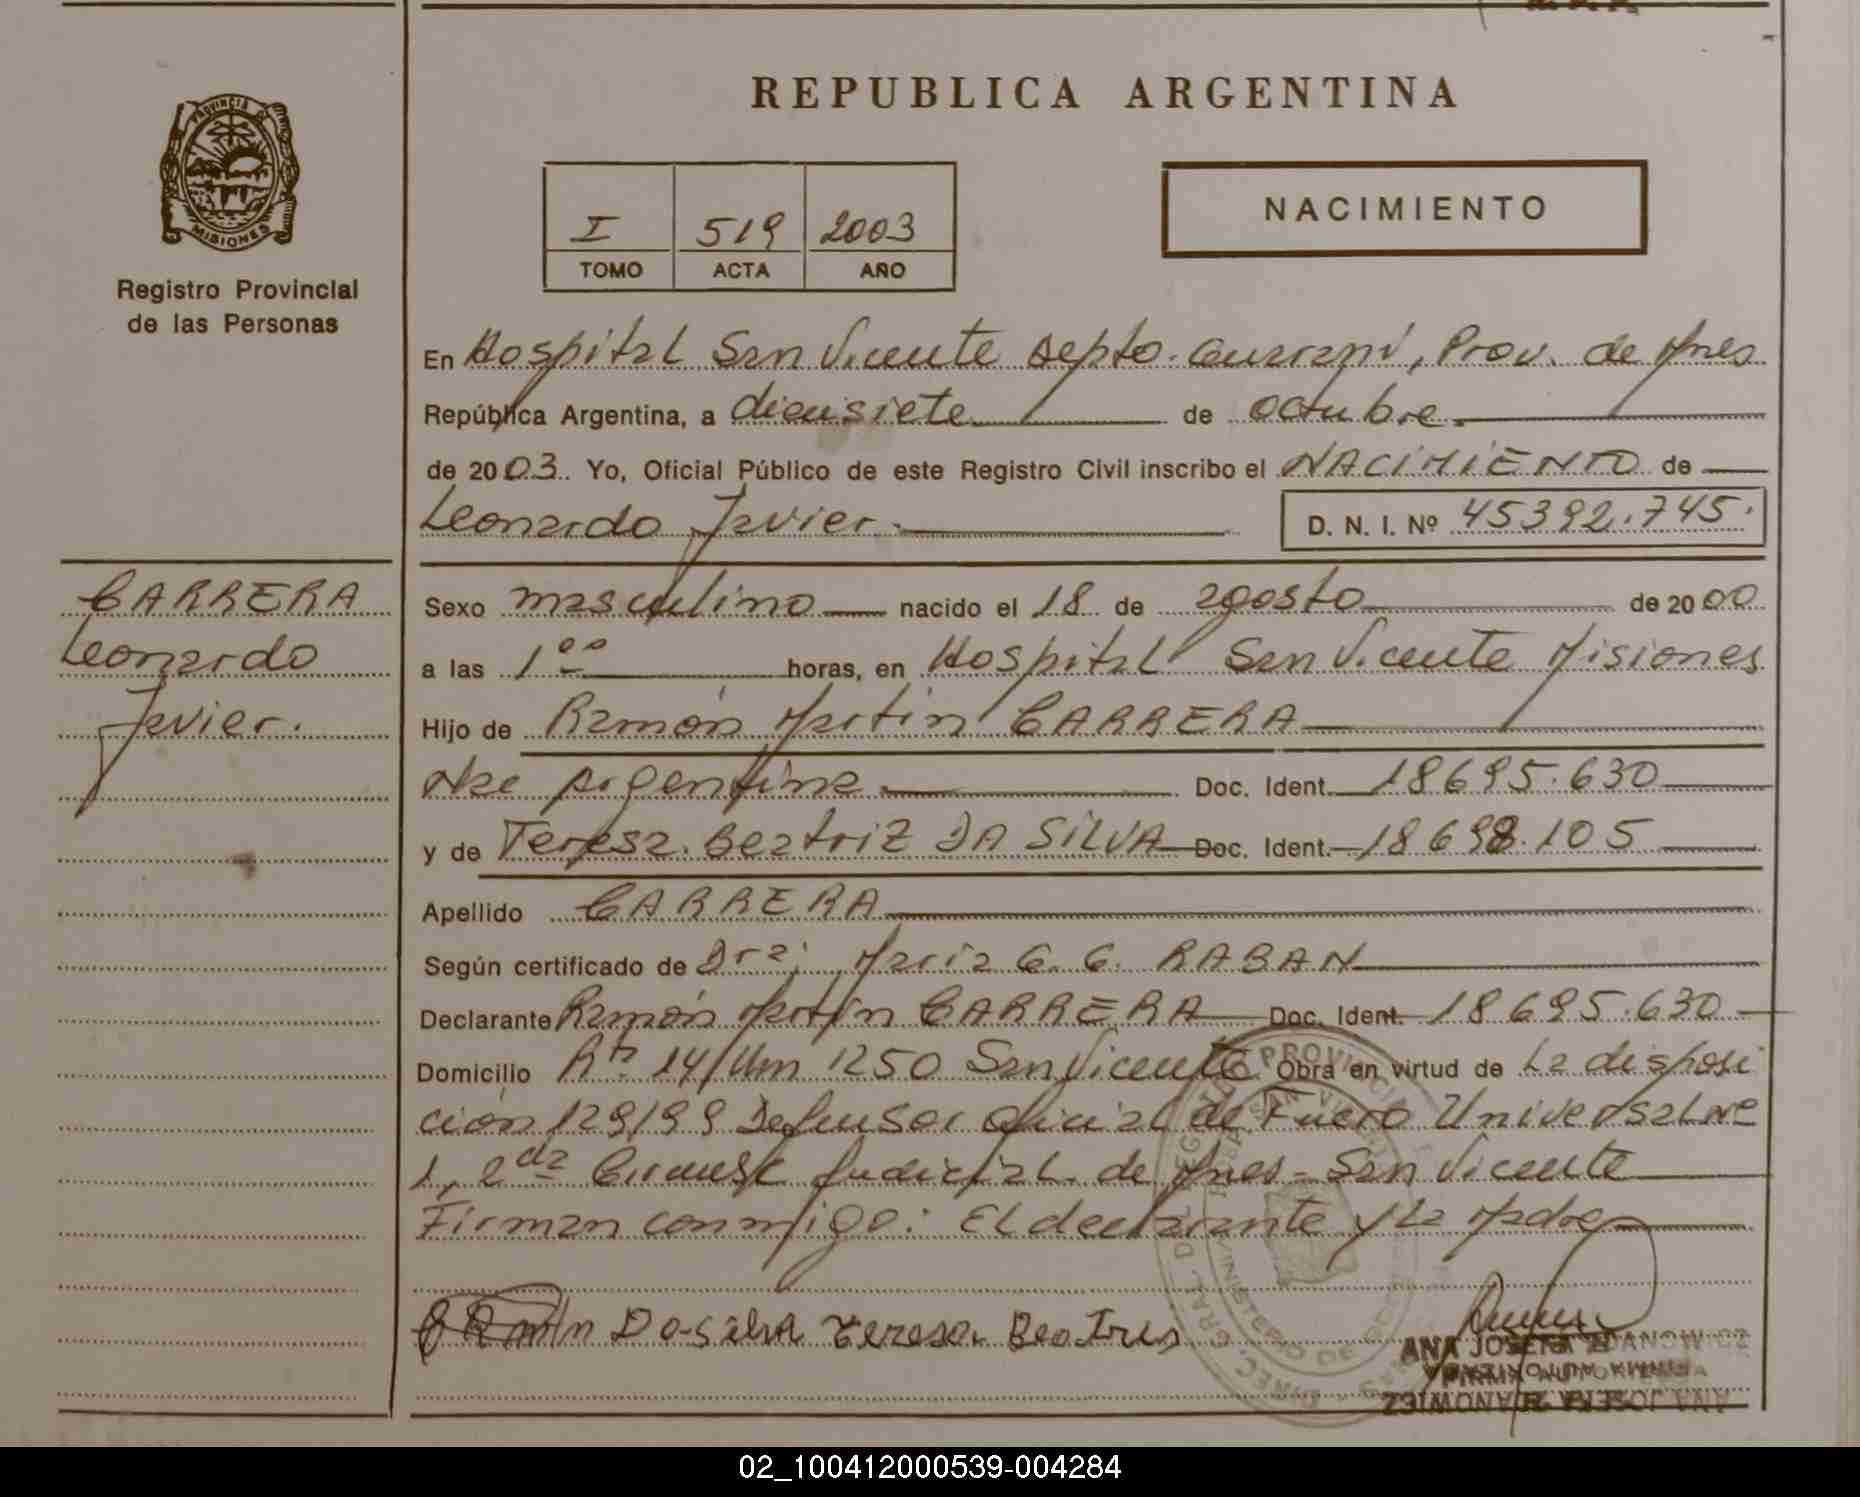 REPUBLICA ARGENTINA
PROVINCIA DE
MISIONES
Registro Provincial
de las Personas
I 519 2003
TOMO ACTA AÑO
NACIMIENTO
En Hospital San Vicente Depto. Guaraní, Prov. de Mnes
República Argentina, a diecisiete de octubre
de 2003. Yo, Oficial Público de este Registro Civil inscribo el NACIMIENTO de
Leonardo Javier. D. N. I. Nº 45392.745.
CARRERA
Leonardo
Javier.
Sexo masculino nacido el 18 de agosto de 2000
a las 1 ºº horas, en Hospital San Vicente Misiones
Hijo de Ramón Martin CARRERA
Nac Argentina Doc. Ident. 18695.630
y de Teresa Beatriz DA SILVA Doc. Ident. 18698.105
Apellido CARRERA
Según certificado de Dra; María G. G. RABAN
Declarante Ramón Martín CARRERA Doc. Ident. 18695.630
Domicilio Rta 14/Km 1250 San Vicente Obra en virtud de La disposi
ción 129/99 Defensor oficial de Fuero Universal Nº
1, 2da Circunsc Judicial de Mnes - San Vicente
Firman conmigo: El declarante y La Madre
Da silva Teresa Beatris
ANA JOSEFA ZDANOWICZ
FIRMA AUTORIZADA
02_100412000539-004284